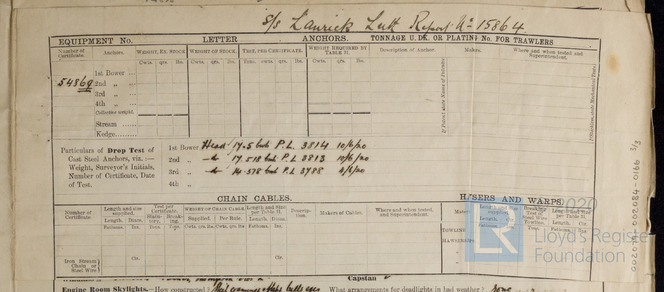 S/S Lanrick Leith Report No 15864
EQUIPMENT No. LETTER ANCHORS. TONNAGE U. DK. OR PLATING No. FOR TRAWLERS
Number of Certificate. Anchors. WEIGHT, EX. STOCK WEIGHT OF STOCK. TEST, PER CERTIFICATE. WEIGHT REQUIRED BY TABLE 31. Description of Anchor. Makers. Where and when tested and Superintendent.
Cwts. qrs. lbs. Cwts. qrs. lbs. Tons. cwts. qrs. lbs. Cwts. qrs. lbs.
1st Bower
54869 2nd „ „
3rd „ „
4th „ „
Collective weight.
Stream
Kedge
Particulars of Drop Test of 1st Bower Head 17.5 Cwts P.L. 3814 10/6/20
Cast Steel Anchors, viz. :— 2nd „ do 17.518 Cwts P.L. 3813 10/6/20
Weight, Surveyor's Initials, 3rd „ do 14.378 Cwts P.L. 3785 4/6/20
Number of Certificate, Date 4th „
of Test.
CHAIN CABLES. HAWSERS AND WARPS.
Number of Certificate. Length and size supplied. Test per Certificate. WEIGHT OF CHAIN CABLE. Length and Size per Table 31. Description. Makers of Cables. Where and when tested, and Superintendent. Material. Length and size supplied. Breaking Test of Steel Wire Towline. Length and Size per Table 31.
Length. Diam. Statutory. Breaking. Supplied. Per Rule. Length. Diam. Length. Cir. Length. Cir.
Fathoms. Ins. Tons. Tons. Cwts. qrs. lbs Cwts. qrs. lbs Fathoms. Ins. Fathoms. Ins. Tons. Fathoms. Ins.
TOWLINE
HAWSERS
Iron Stream Chain or Steel Wire Cir. Cir.
© 2020
LR
Lloyd's Register
Foundation
Capstan
Engine Room Skylights.—How constructed? What arrangements for deadlights in bad weather?